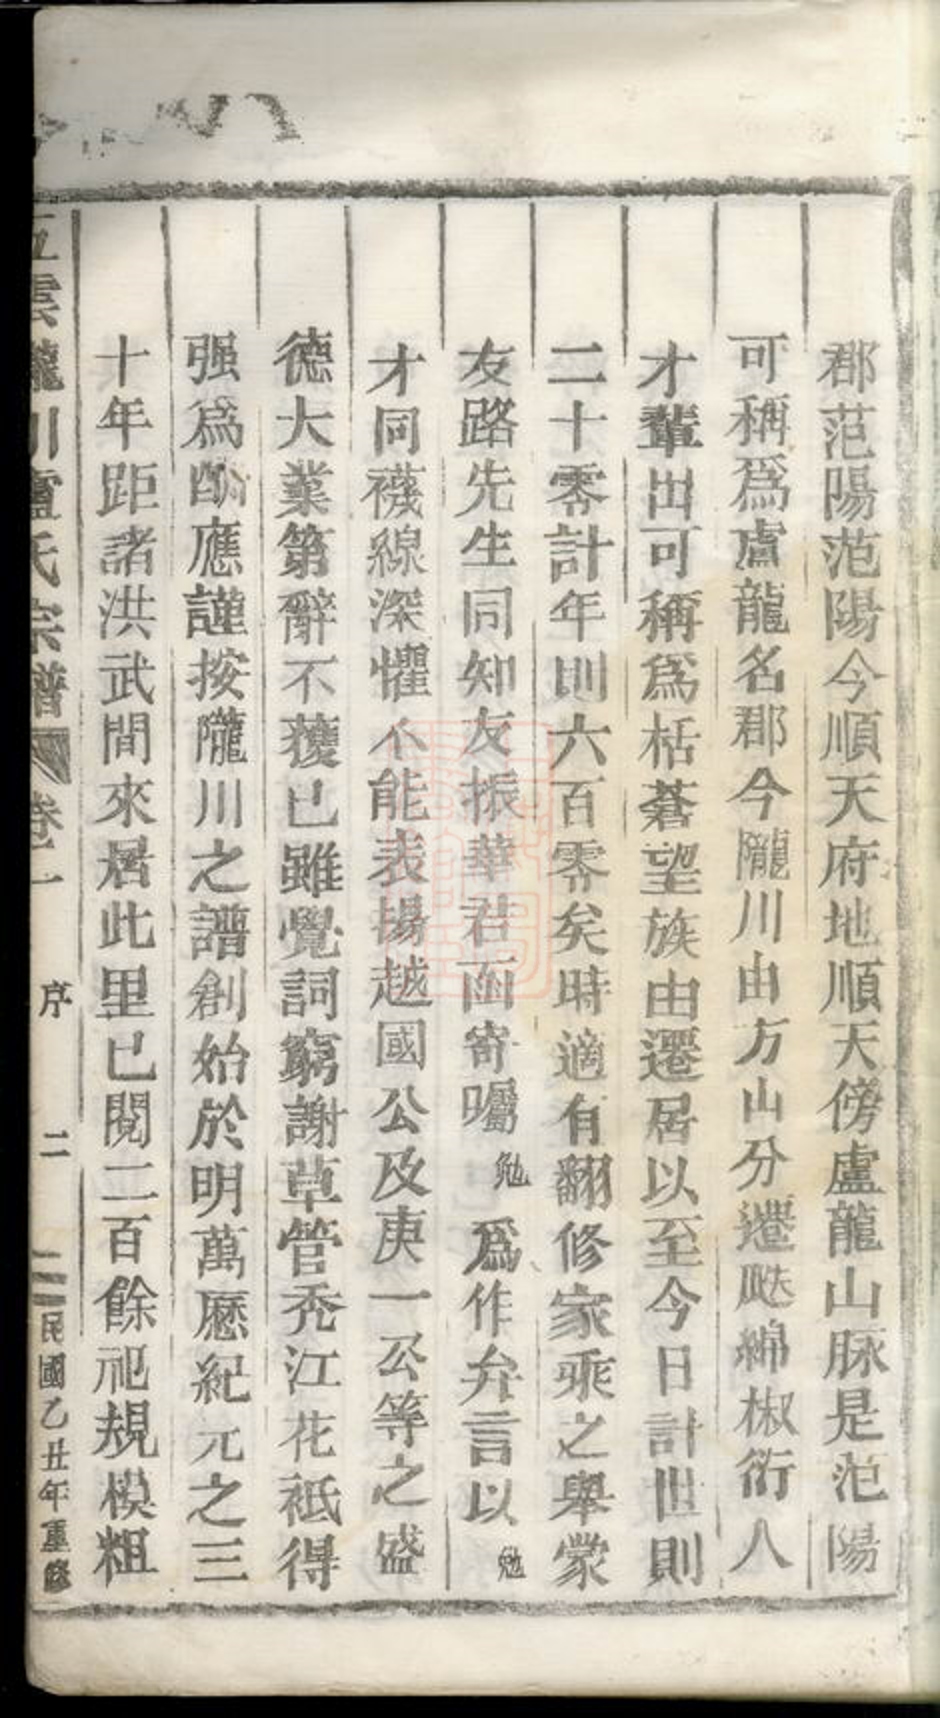 郡范陽范陽今順天府地順天傍盧龍山脉是范陽
可稱爲盧龍名郡今隴川由方山分遷瓞綿椒衍人
才輩出可稱爲栝蒼望族由遷居以至今日計世則
二十零計年則六百零矣時適有翻修家乘之舉蒙
友路先生同知友振華君函寄囑勉爲作弁言以勉
才同襪線深懼不能表揚越國公及庚一公等之盛
德大業第辭不獲已雖覺詞窮謝草管禿江花祇得
强爲酧應謹按隴川之譜創始於明萬歷紀元之三
十年距諸洪武間來居此里已閱二百餘祀規模粗
五雲隴川盧氏宗譜 卷一 序 二 民國乙丑年重修